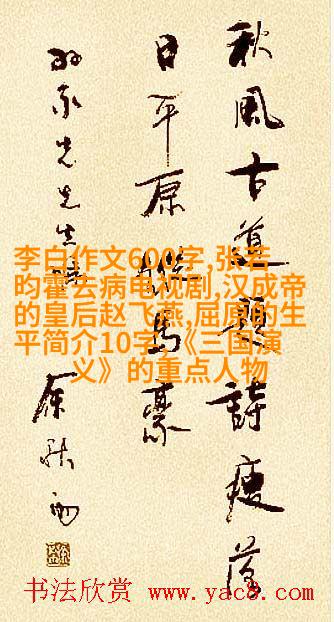 秋風古道題詩瘦落
日平原縱馬豪
先生
余秋雨
李白作文600字,张若
昀霍去病电视剧,汉成帝
的皇后赵飞燕,屈原的生
平简介10字,《三国演
义》的重点人物
书法欣赏 www.yac8.com